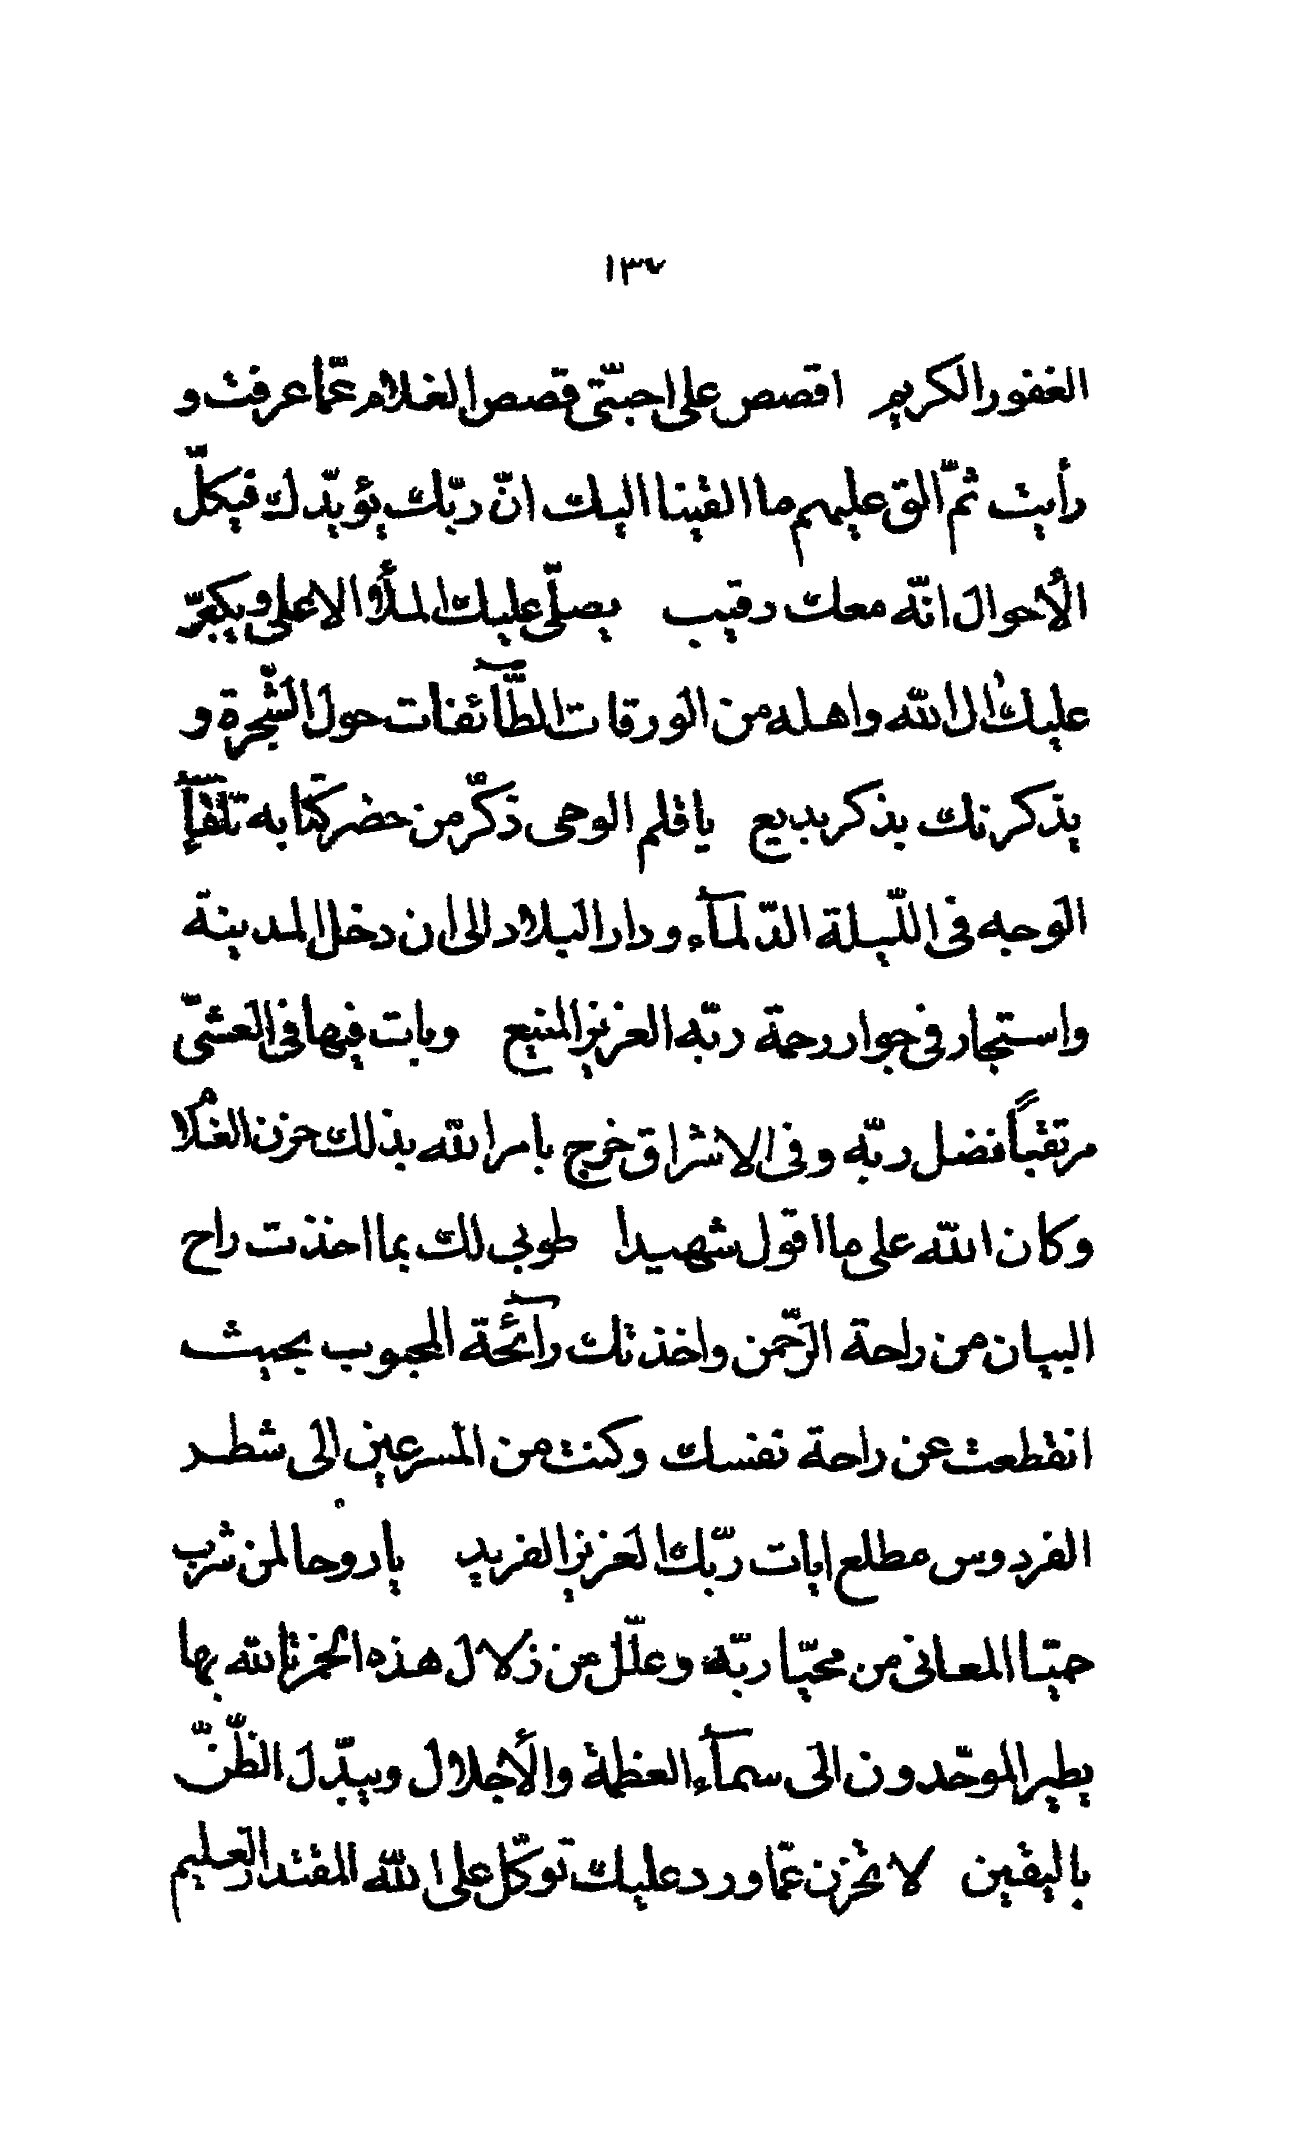 ١٣٧
الغفور الكريم اقصص على احبّتى قصص الغلام عمّا عرفت و
رأيت ثمّ الق عليهم ما القينا اليك انّ ربّك يؤيّدك فيكلّ
الأحوال انّه معك رقيب يصلّى عليك الملأ الاعلى و يكبّر
عليك ال الله و اهله من الورقات الطّآئفات حول الشّجرة و
يذكرنك بذكر بديع يا قلم الوحى ذكّر من حضر كتابه تلقآء
الوجه فى اللّيلة الدّلمآء و دار البلاد الى ان دخل المدينة
و استجار فى جوار رحمة ربّه العزيز المنيع و بات فيها فى العشىّ
مرتقباً فضل ربّه و فى الاشراق خرج بامر الله بذلك حزن الغلام
و كان الله على ما اقول شهيدا طوبى لك بما اخذت راح
البيان من راحة الرّحمن و اخذتك رآئحة المحبوب بحيث
انقطعت عن راحة نفسك و كنت من المسرعين الى شطر
الفردوس مطلع ايات ربّك العزيز الفريد يا روحا لمن شرب
حميّا المعانى من محيّا ربّه و علّل من زلال هذه الخمر تالله بها
يطير الموحّدون الى سمآء العظمة و الأجلال و يبدّل الظّنّ
باليقين لا تحزن عمّا ورد عليك توكّل على الله المقتدر العليم